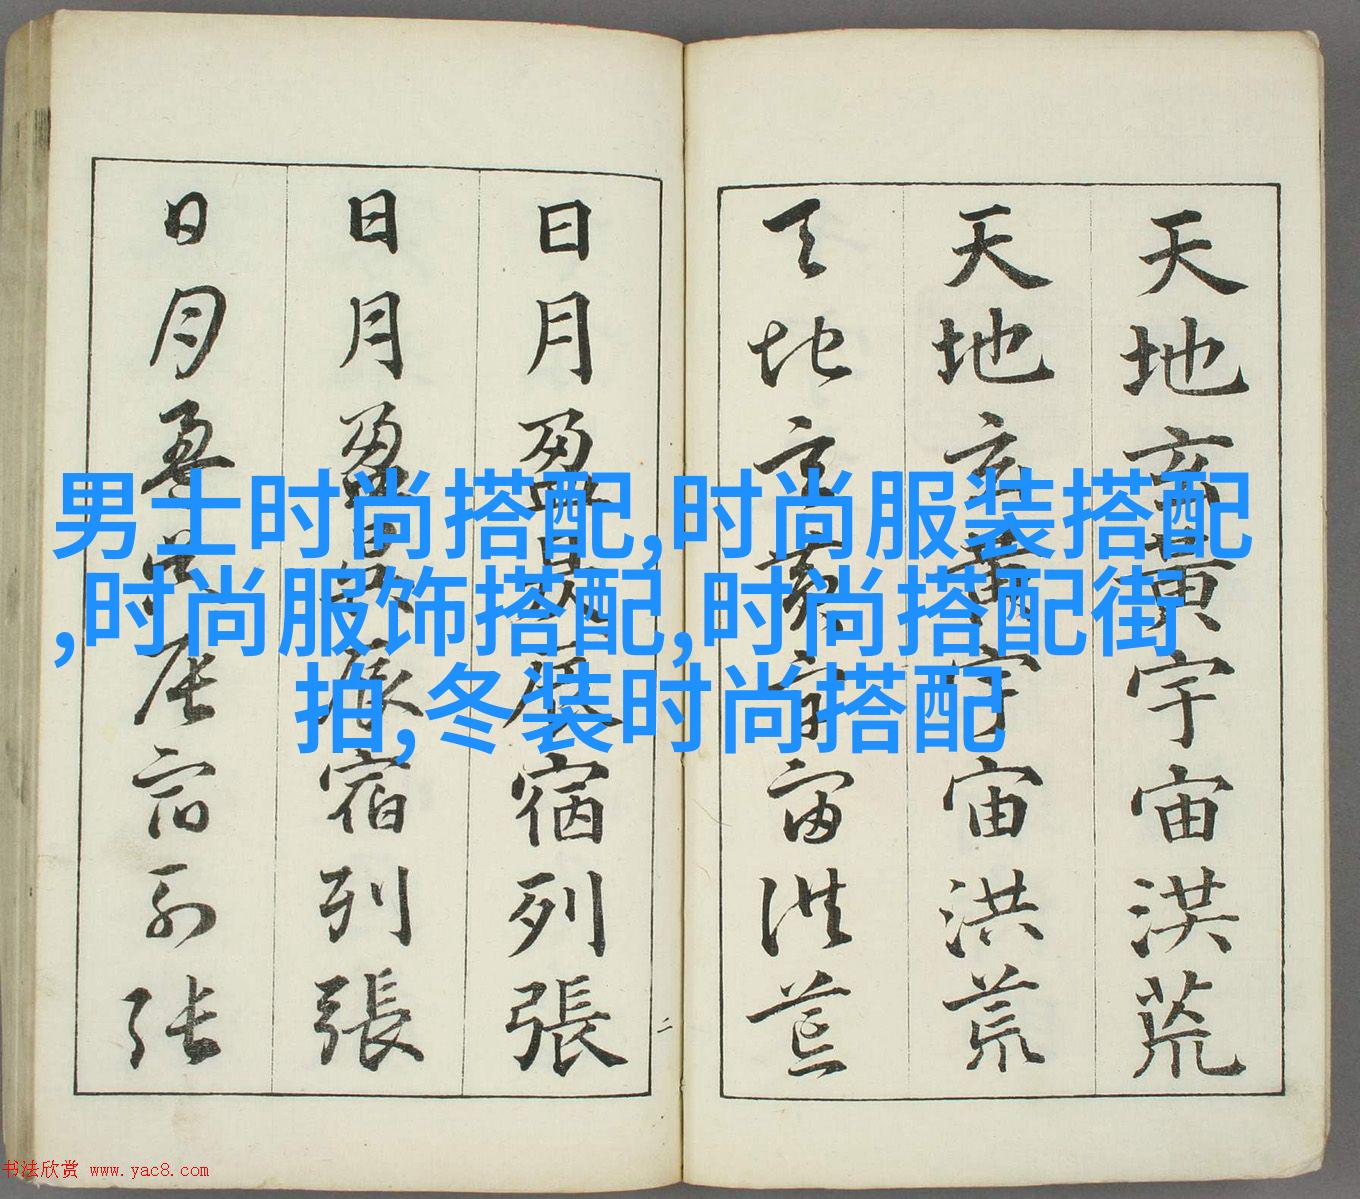 天地玄黃宇宙洪荒
天地玄黃宇宙洪荒
天地玄黃宇宙洪荒
日月盈昃辰宿列張
日月盈昃辰宿列張
日月盈昃辰宿列張
二
男士时尚搭配,时尚服装搭配
,时尚服饰搭配,时尚搭配街
拍,冬装时尚搭配
书法欣赏 www.yac8.com